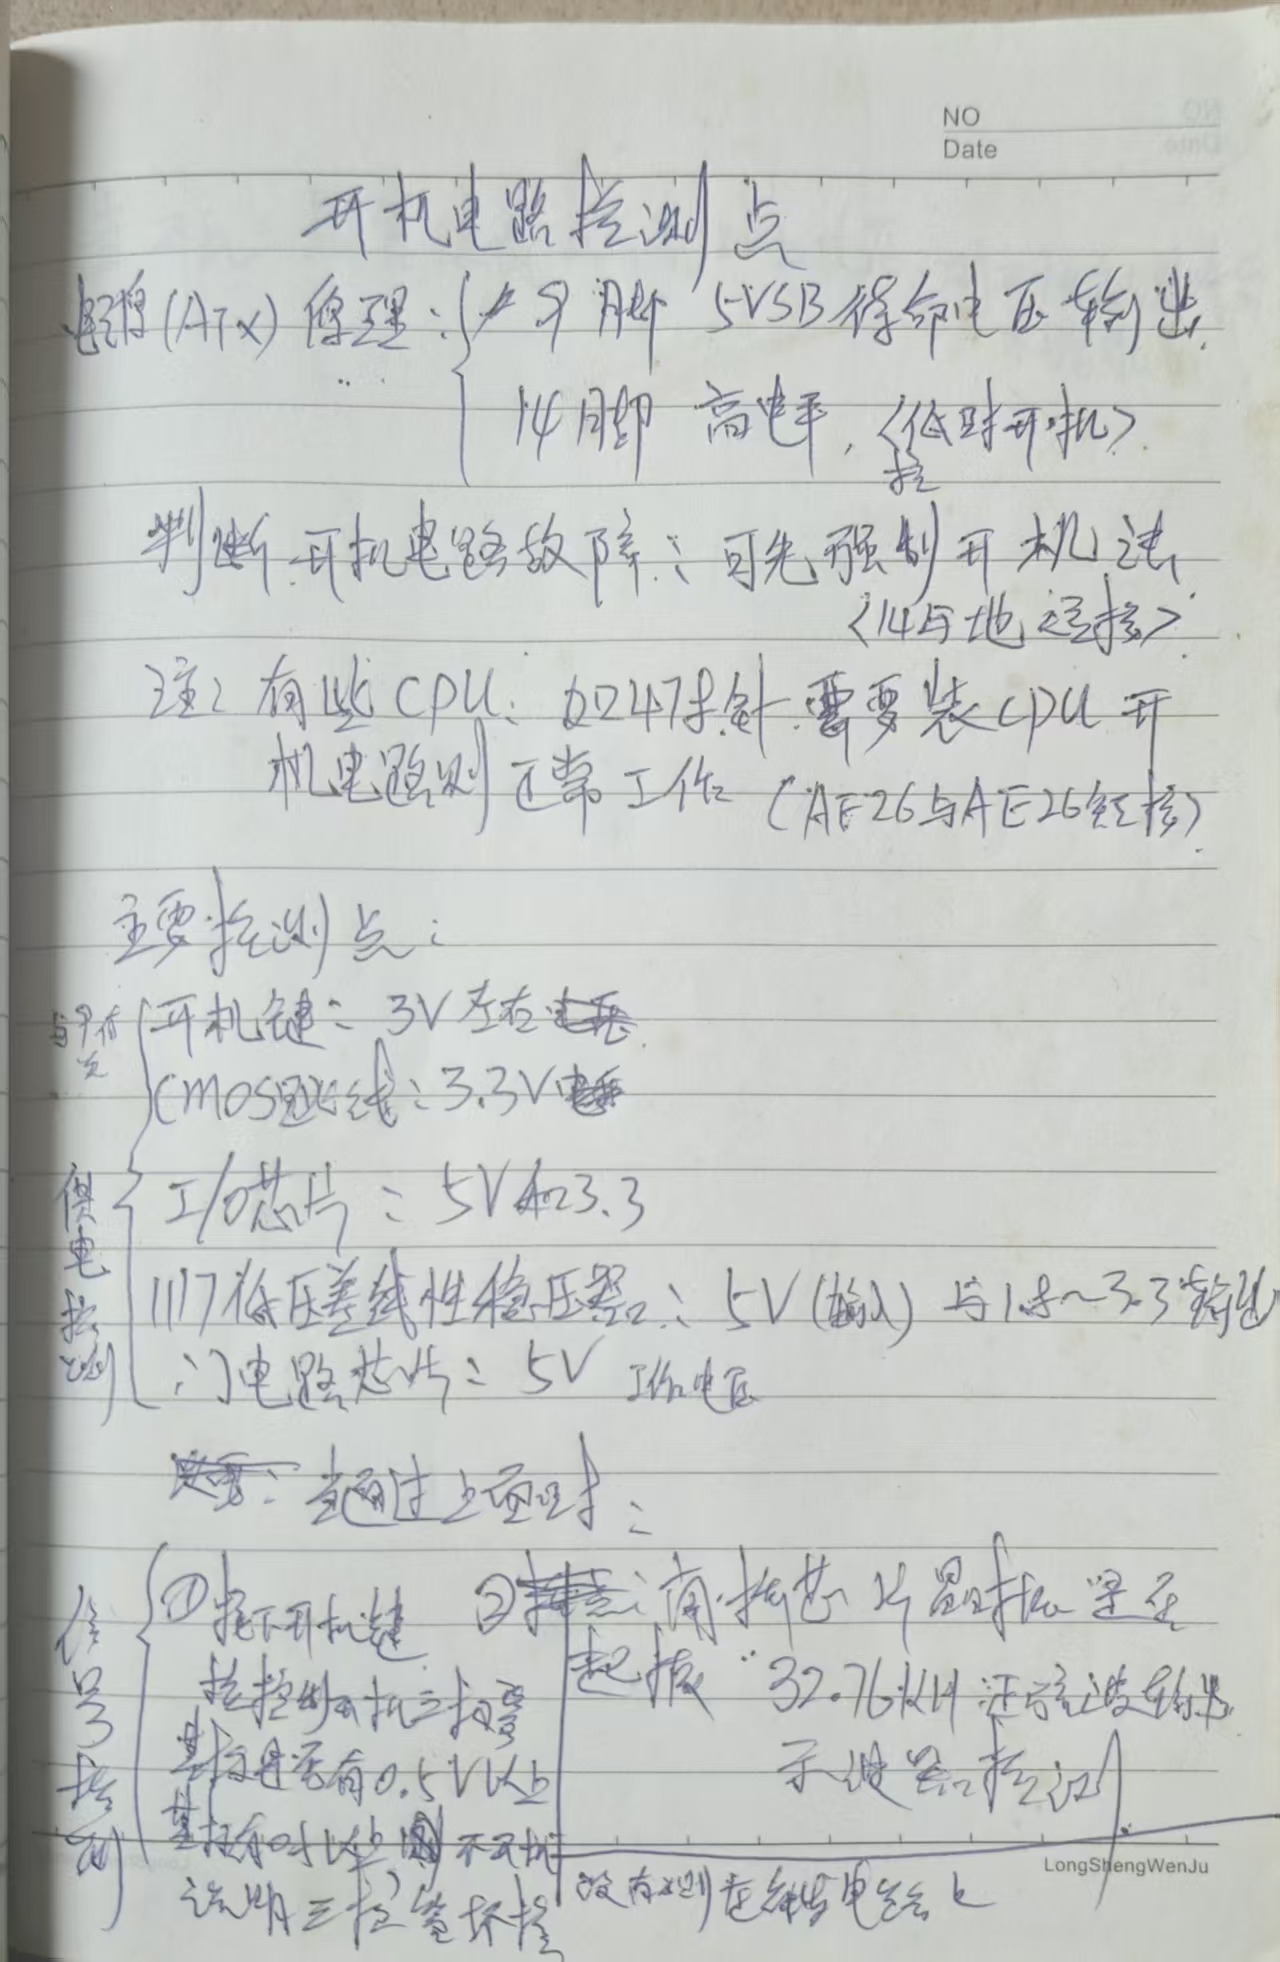 NO
Date
开机电路检测点
电源(ATX)原理: 9脚 5VSB待命电压输出
14脚 高电平,〈低时开机〉
检
判断开机电路故障:可先强制开机法
〈14与地连接〉
注:有些CPU:如478针 需要装CPU开
机电路则正常工作(AF26与AE26短接)
主要检测点:
开机键:3V左右
CMOS跳线:3.3V
供电检测
I/O芯片:5V和3.3
1117低压差线性稳压器:5V(输入)与1.8~3.3输出
门电路芯片:5V 工作电压
当通过上面时:
信号检测
①按下开机键
检控制开机三极管
基极是否有0.5V以上
基极有0.5以上 不开机
说明三极管坏掉
② 南桥芯片晶振是否
起振 32.76KH 正弦波输出
示波器检测
没有则在触发电路上
LongShengWenJu